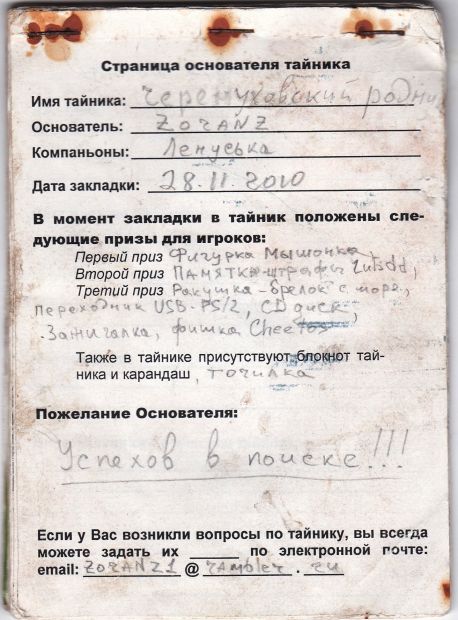 Страница основателя тайника
Имя тайника: Черемуховский родник
Основатель: ZORANZ
Компаньоны: Ленуська
Дата закладки: 28.11.2010
В момент закладки в тайник положены сле-
дующие призы для игроков:
Первый приз Фигурка Мышонка,
Второй приз ПАМЯТКА-штрафы
Третий приз Ракушка-брелок с моря,
переходник USB-PS/2, CD диск,
Зажигалка, фишка Cheetos
Также в тайнике присутствуют блокнот тай-
ника и карандаш, точилка
Пожелание Основателя:
Успехов в поиске!!!
Если у Вас возникли вопросы по тайнику, вы всегда
можете задать их ______ по электронной почте:
email: ZORANZ1 @ rambler . ru